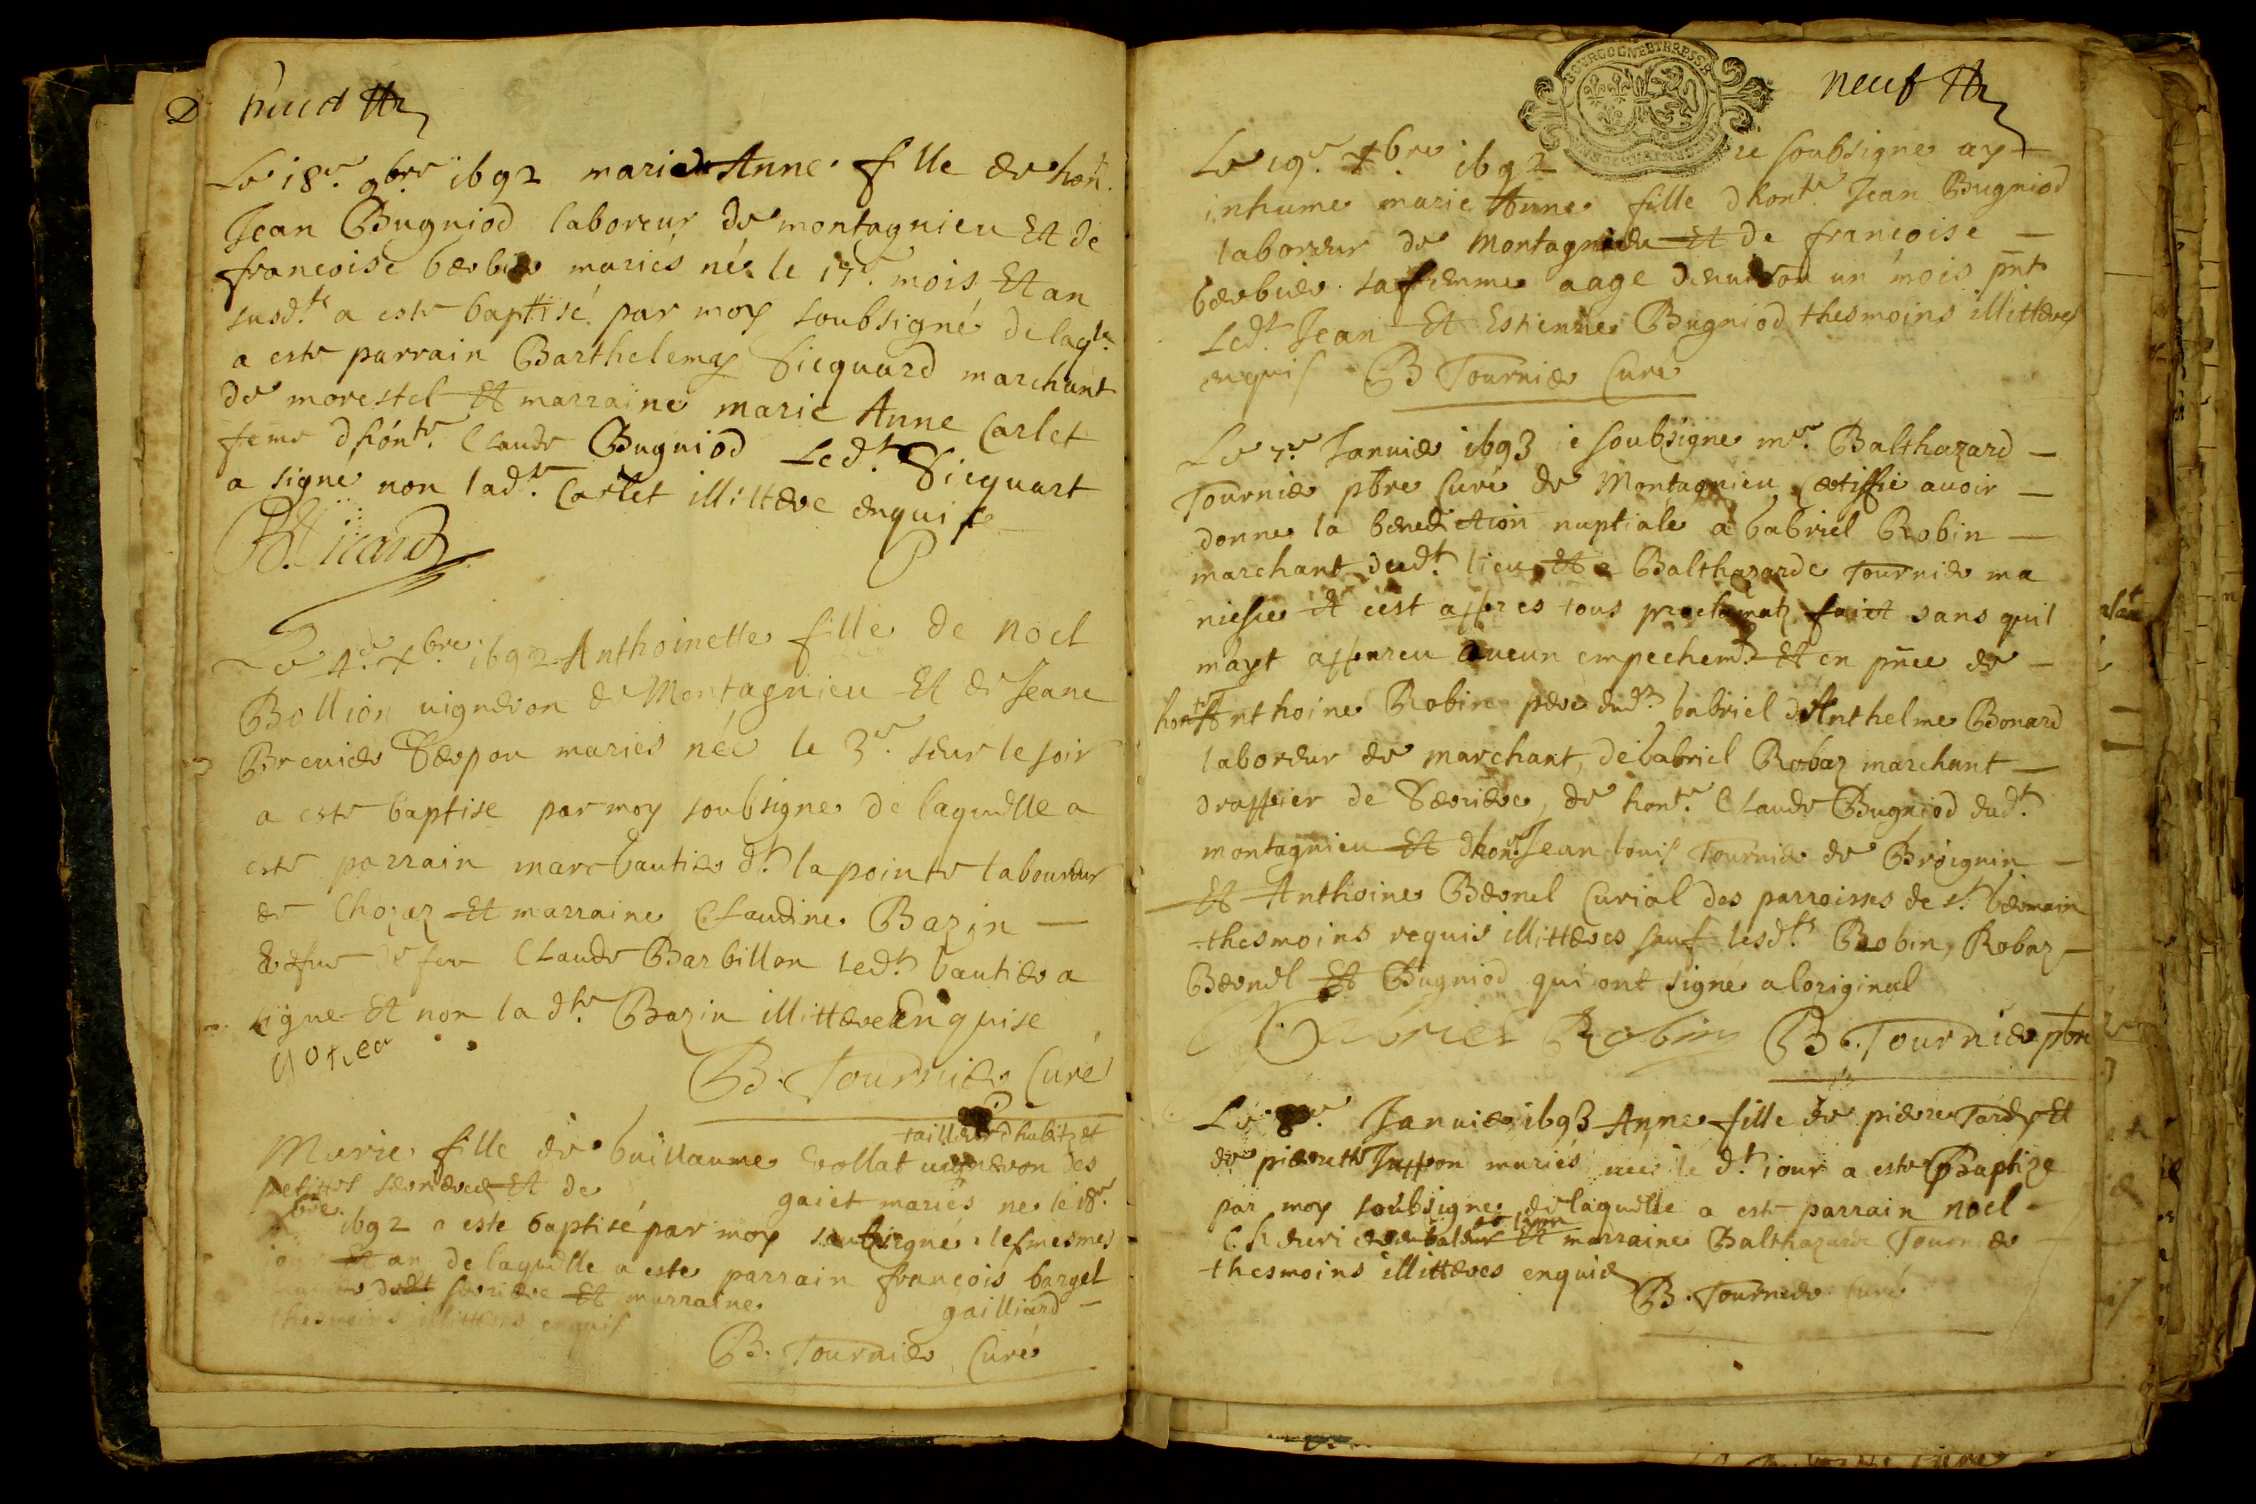 huict
Le 18e. 9bre 1692 marie Anne fille de hon.
Jean Bugniod laboreur de montagnieu Et de
francoise berbier mariés née le 17e. mois Et an
susdts a este baptisé par moy soubsigné de laqle.
a este parrain Barthelemy Sicquard marchant
de morestel Et marraine marie Anne Carlet
feme dhonte. Claude Bugniod Ledt. Sicquart
a signe non ladte. Carlet illittere enquise
B. Sicard
Le 4e. Xbre 1692 Anthoinette fille de noel
Bollion vigneron de Montagnieu Et de Jeane
Brevier Serpou mariés née le 3e. sur le soir
a este baptise par moy soubsigne de laquelle a
este parrain marc Gautier dt. la pointe laboureur
de Chozaz Et marraine Claudine Bazin
vefve de feu Claude Barbillon ledt. Gautier a
signe Et non la dte. Bazin illittere Enquise
B. Tournier Curé
tailleur dhabitz et
Marie fille de Guillaume vigneron des
petittes serrieres Et de gaiet mariés ne le 18e.
Xbre. 1692 a este baptisé par moy soubsigné les mesmes
jour Et an de laquelle a este parrain francois barget
dudt serriere Et marraine gailliard
thesmoins illitteres enquis
B. Tournier Curé
BOURGOGNE BRESSE
neuf
Le 19e. Xbre. 1692 ie soubsigne ay
inhume marie Anne fille dhonte. Jean Bugniod
laboreur de Montagnieu Et de francoise
berbier sa femme aage denviron un mois pnt
Ledt. Jean Et Estienne Bugniod thesmoins illitteres
enquis B Tournier Curé
Le 7e. Janvier 1693 ie soubsigne mre. Balthazard
Tournier pbre Curé de Montagnieu certiffie avoir
donne la benediction nuptiale a Gabriel Robin
marchant dudt. lieu Et a Balthazarde Tournier ma
niesce Et cest appres tous proclamatz faict sans quil
mayt apparu aucun empechemt. Et en pnce de
honte Anthoine Robin pere dudt. Gabriel dAnthelme Bonard
laboreur de marchant, de Gabriel Robaz marchant
drappier de Serriere, de honte. Claude Bugniod dudt.
montagnieu Et dhon. Jean louis Tournier de Broignin
Et Anthoine Bernel Curial des parroisses de st. Germain
thesmoins requis illitteres sauf lesdts. Robin, Robaz
Bernel Et Bugniod qui ont signé a loriginal
Gabriel Robin B. Tournier pbre
Le 8e. Janvier 1693 Anne fille de pierre Tardy Et
de pierrette Juppon mariés née le dt. iour a este Baptize
par moy soubsigne de laquelle a este parrain noel
Et marraine Balthazarde Tournier
thesmoins illitteres enquis
B. Tournier curé